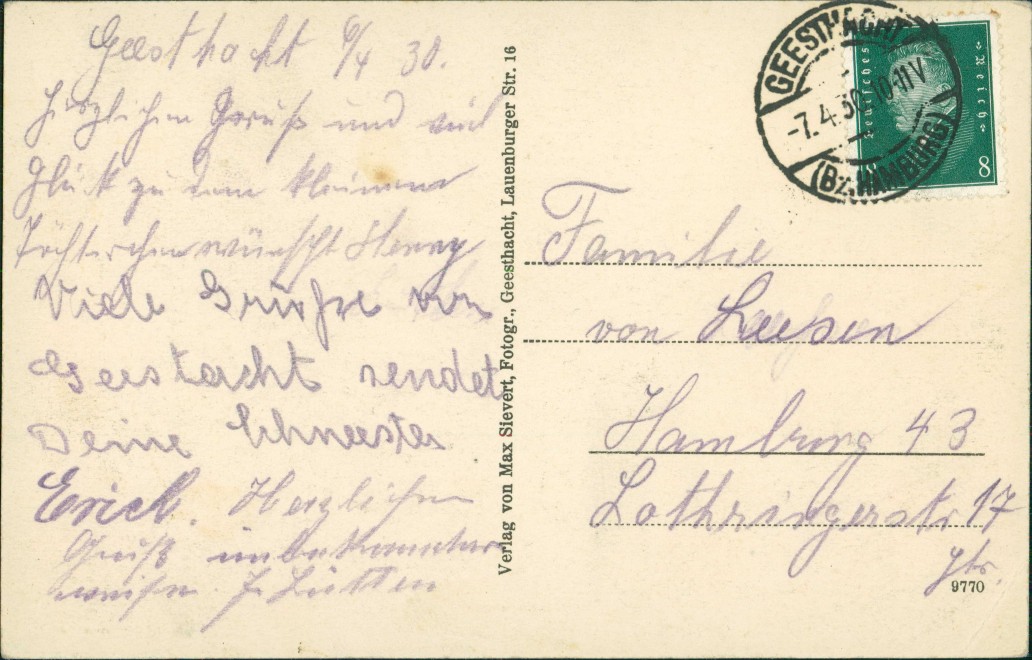 Geesthacht 6/4 30.
Herzlichen Gruß und viel
Glück zu dem kleinen
Töchterchen wünscht Henny
Viele Grüße von
Geestacht sendet
Deine
Erich. Herzlichen
Gruß unbekannter
weise. J. Lütten
Verlag von Max Sievert, Fotogr., Geesthacht, Lauenburger Str. 16
GEESTHACHT
-7.4.30.10-11V
(BZ. HAMBURG)
Deutsches Reich
8
Familie
von Leesen
Hamburg 43
Lothringerstr 17
ptr.
9770